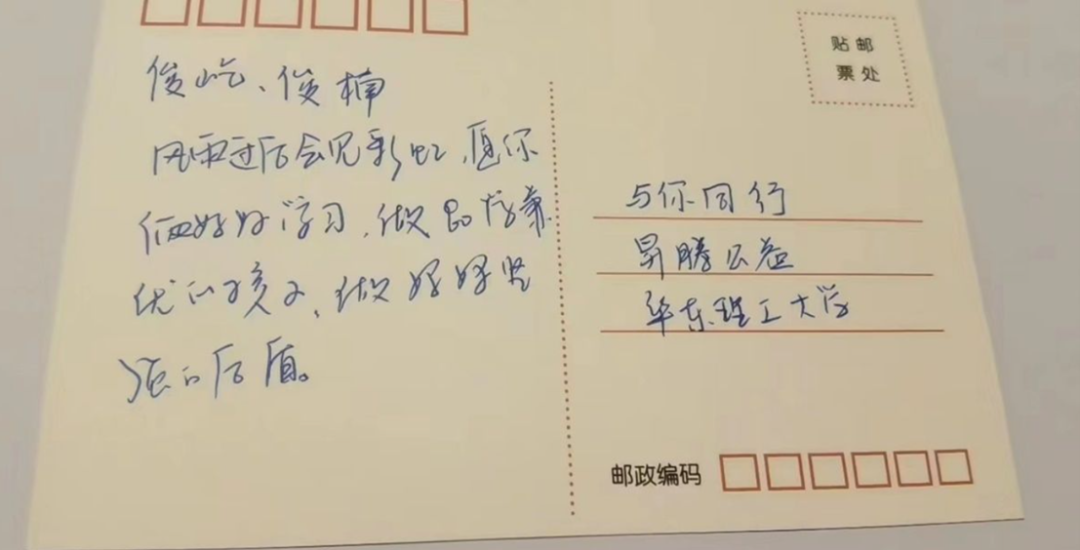 俊屹、俊楠
风雨过后会见彩虹，愿你
们俩好好学习，做品学兼
优的孩子，做妈妈坚
强的后盾。
贴邮
票处
与你同行
昇腾公益
华东理工大学
邮政编码